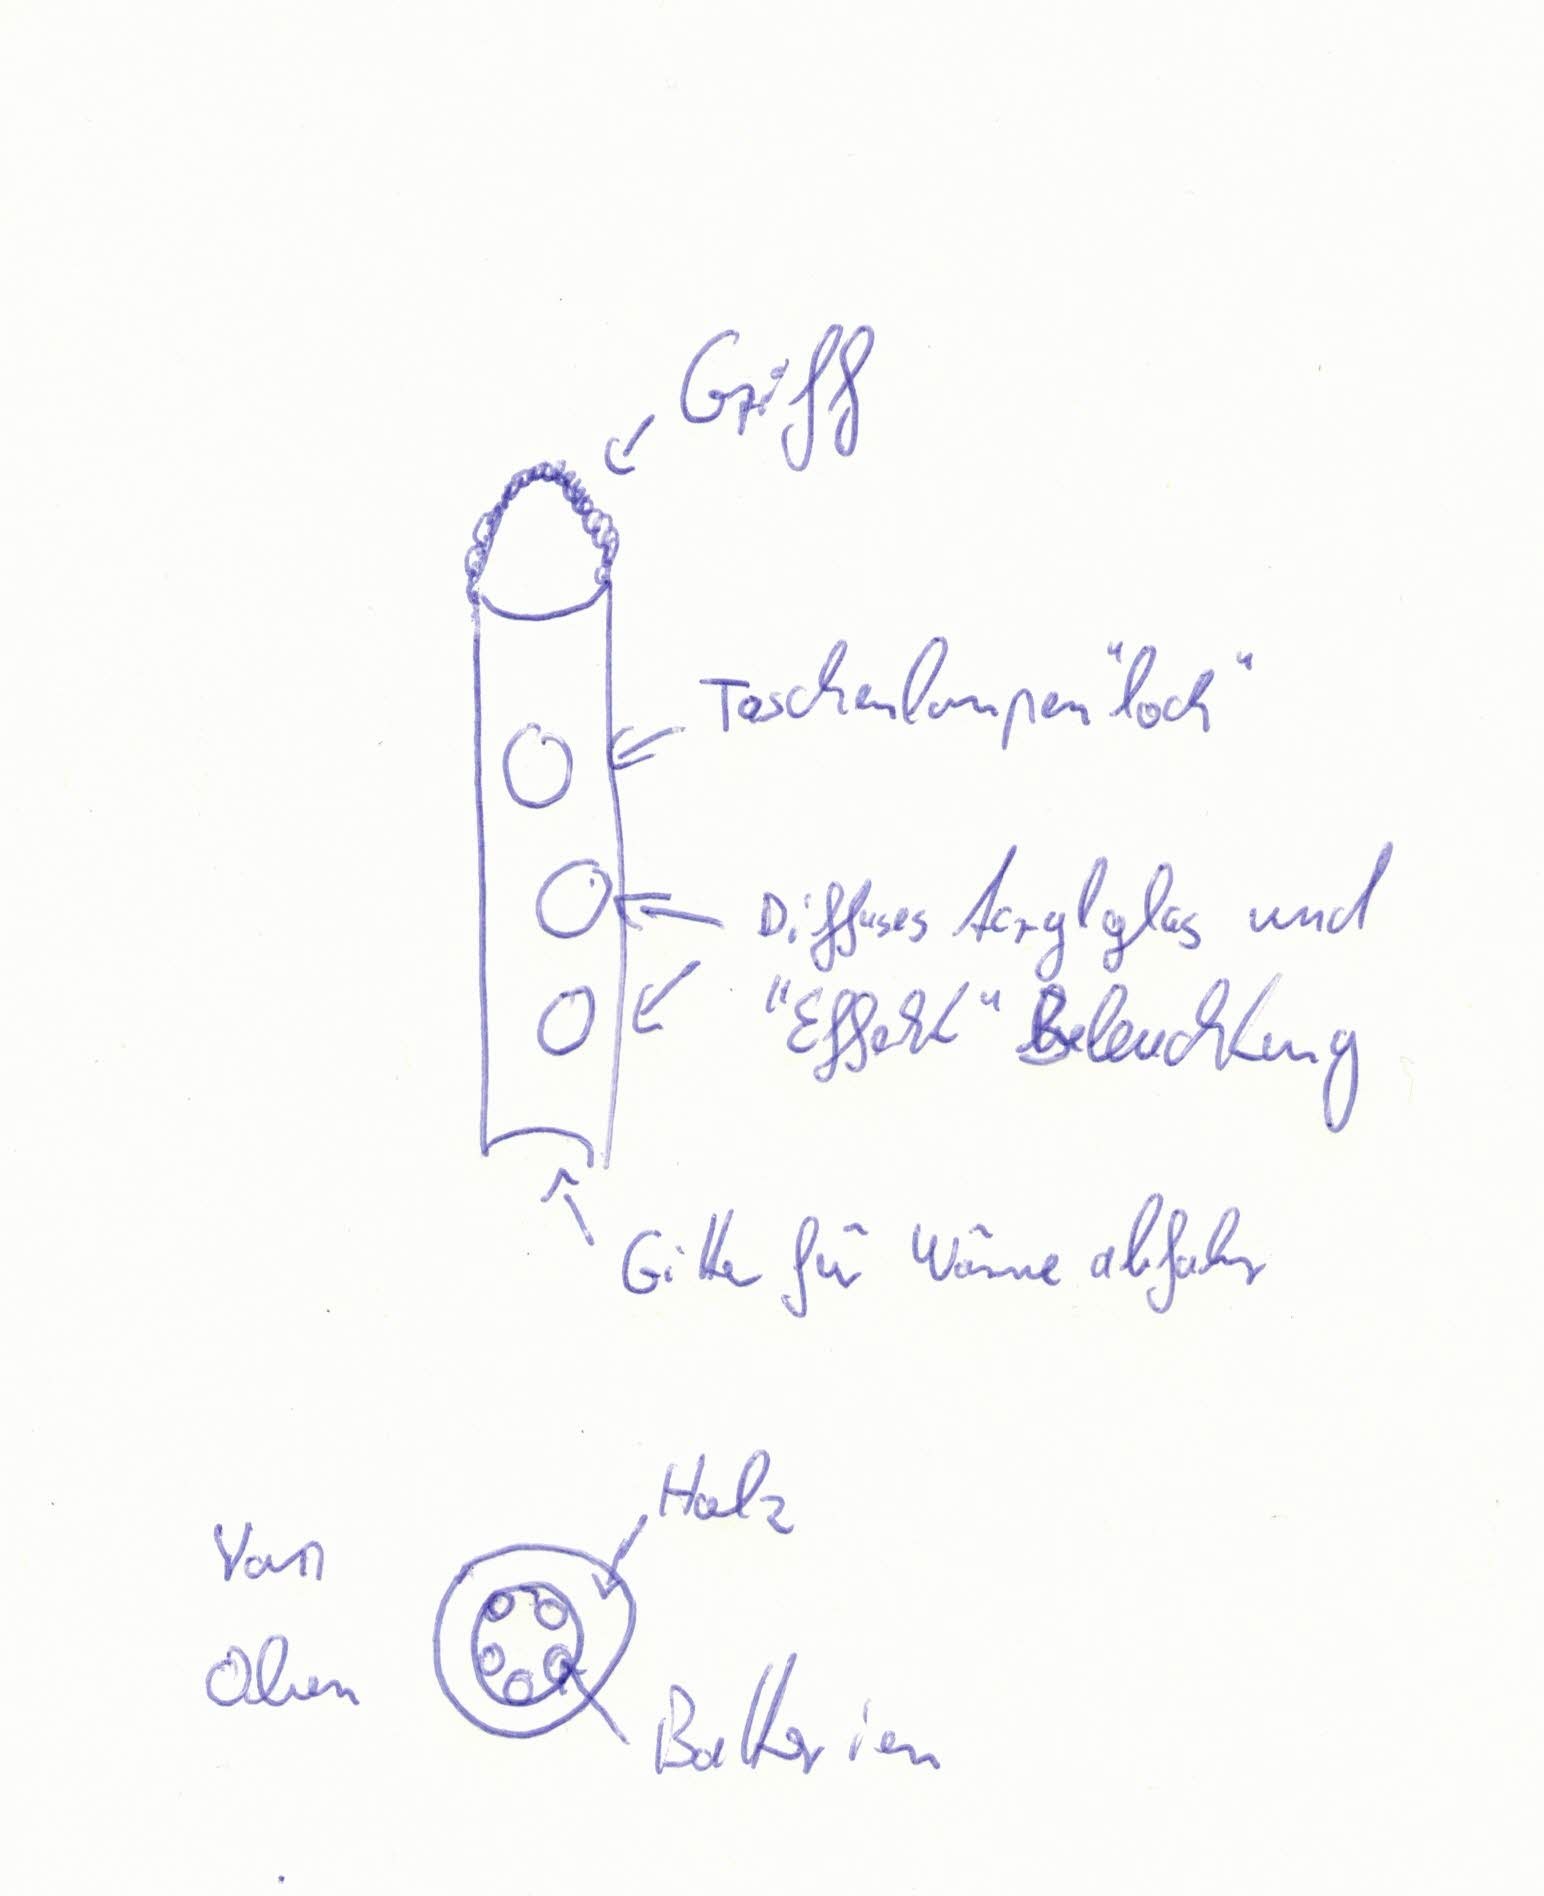 Griff
Taschenlampen "loch"
Diffuses Acrylglas und
"Effekt" Beleuchtung
Gitter für Wärme abfuhr
Von
Oben
Holz
Batterien